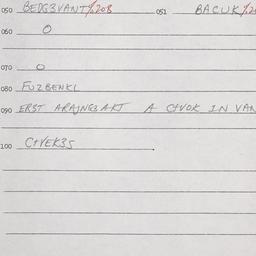 050 BEDG3VANT/1208 051 BACUK/12
060 O
070 O
080 FUZBENKL
090 ERST ARAJNG3AKT A CTVOK IN VAN
100 CTVEK35